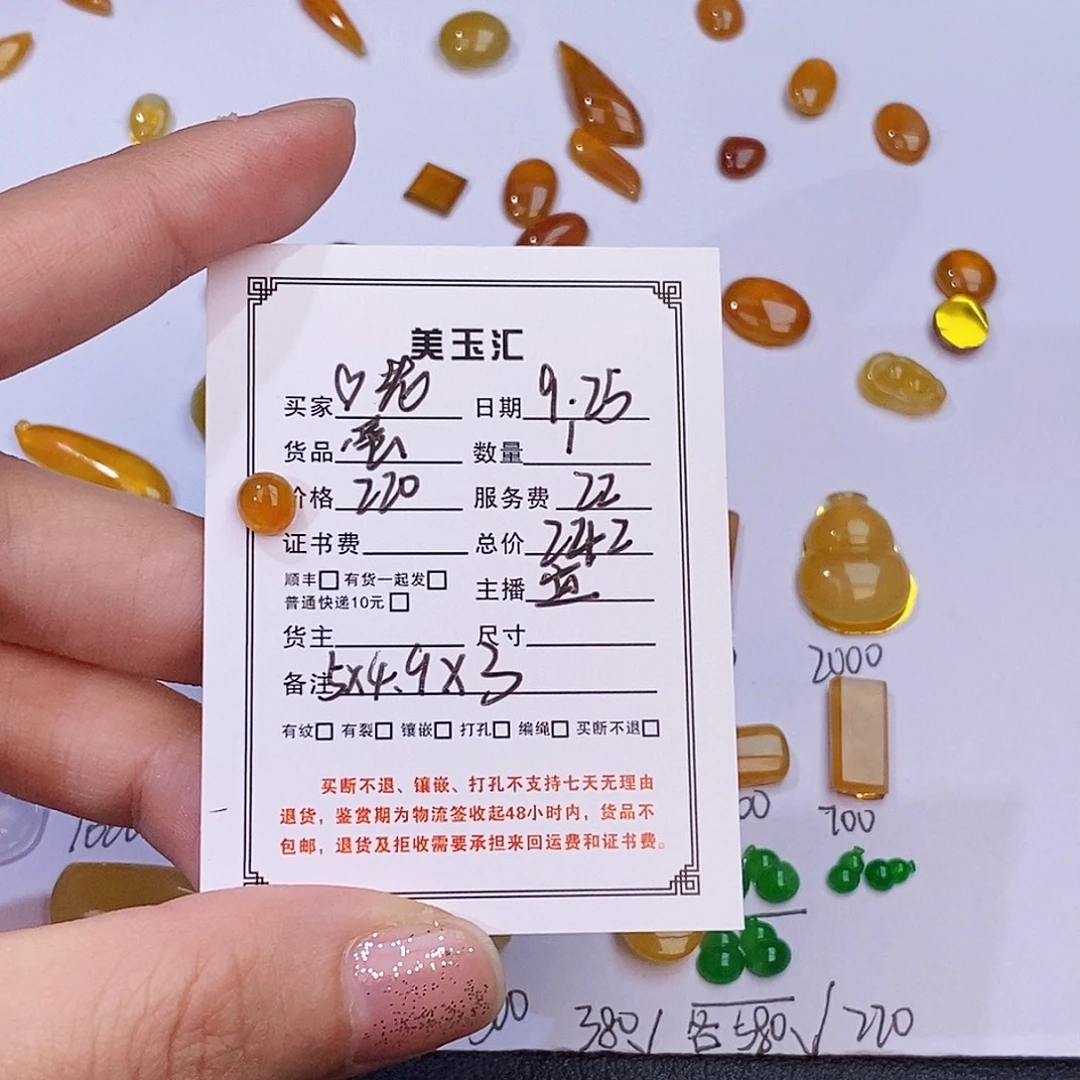 美玉汇
买家 日期 9.25
货品 蛋 数量 1
价格 220 服务费 22
证书费 总价 242
顺丰□ 有货一起发□
普通快递10元□
主播
货主 尺寸
备注 5x4.9x3
有纹□ 有裂□ 镶嵌□ 打孔□ 编绳□ 买断不退□
买断不退、镶嵌、打孔不支持七天无理由
退货，鉴赏期为物流签收起48小时内，货品不
包邮，退货及拒收需要承担来回运费和证书费。
2000
700
380/ 各580 / 220